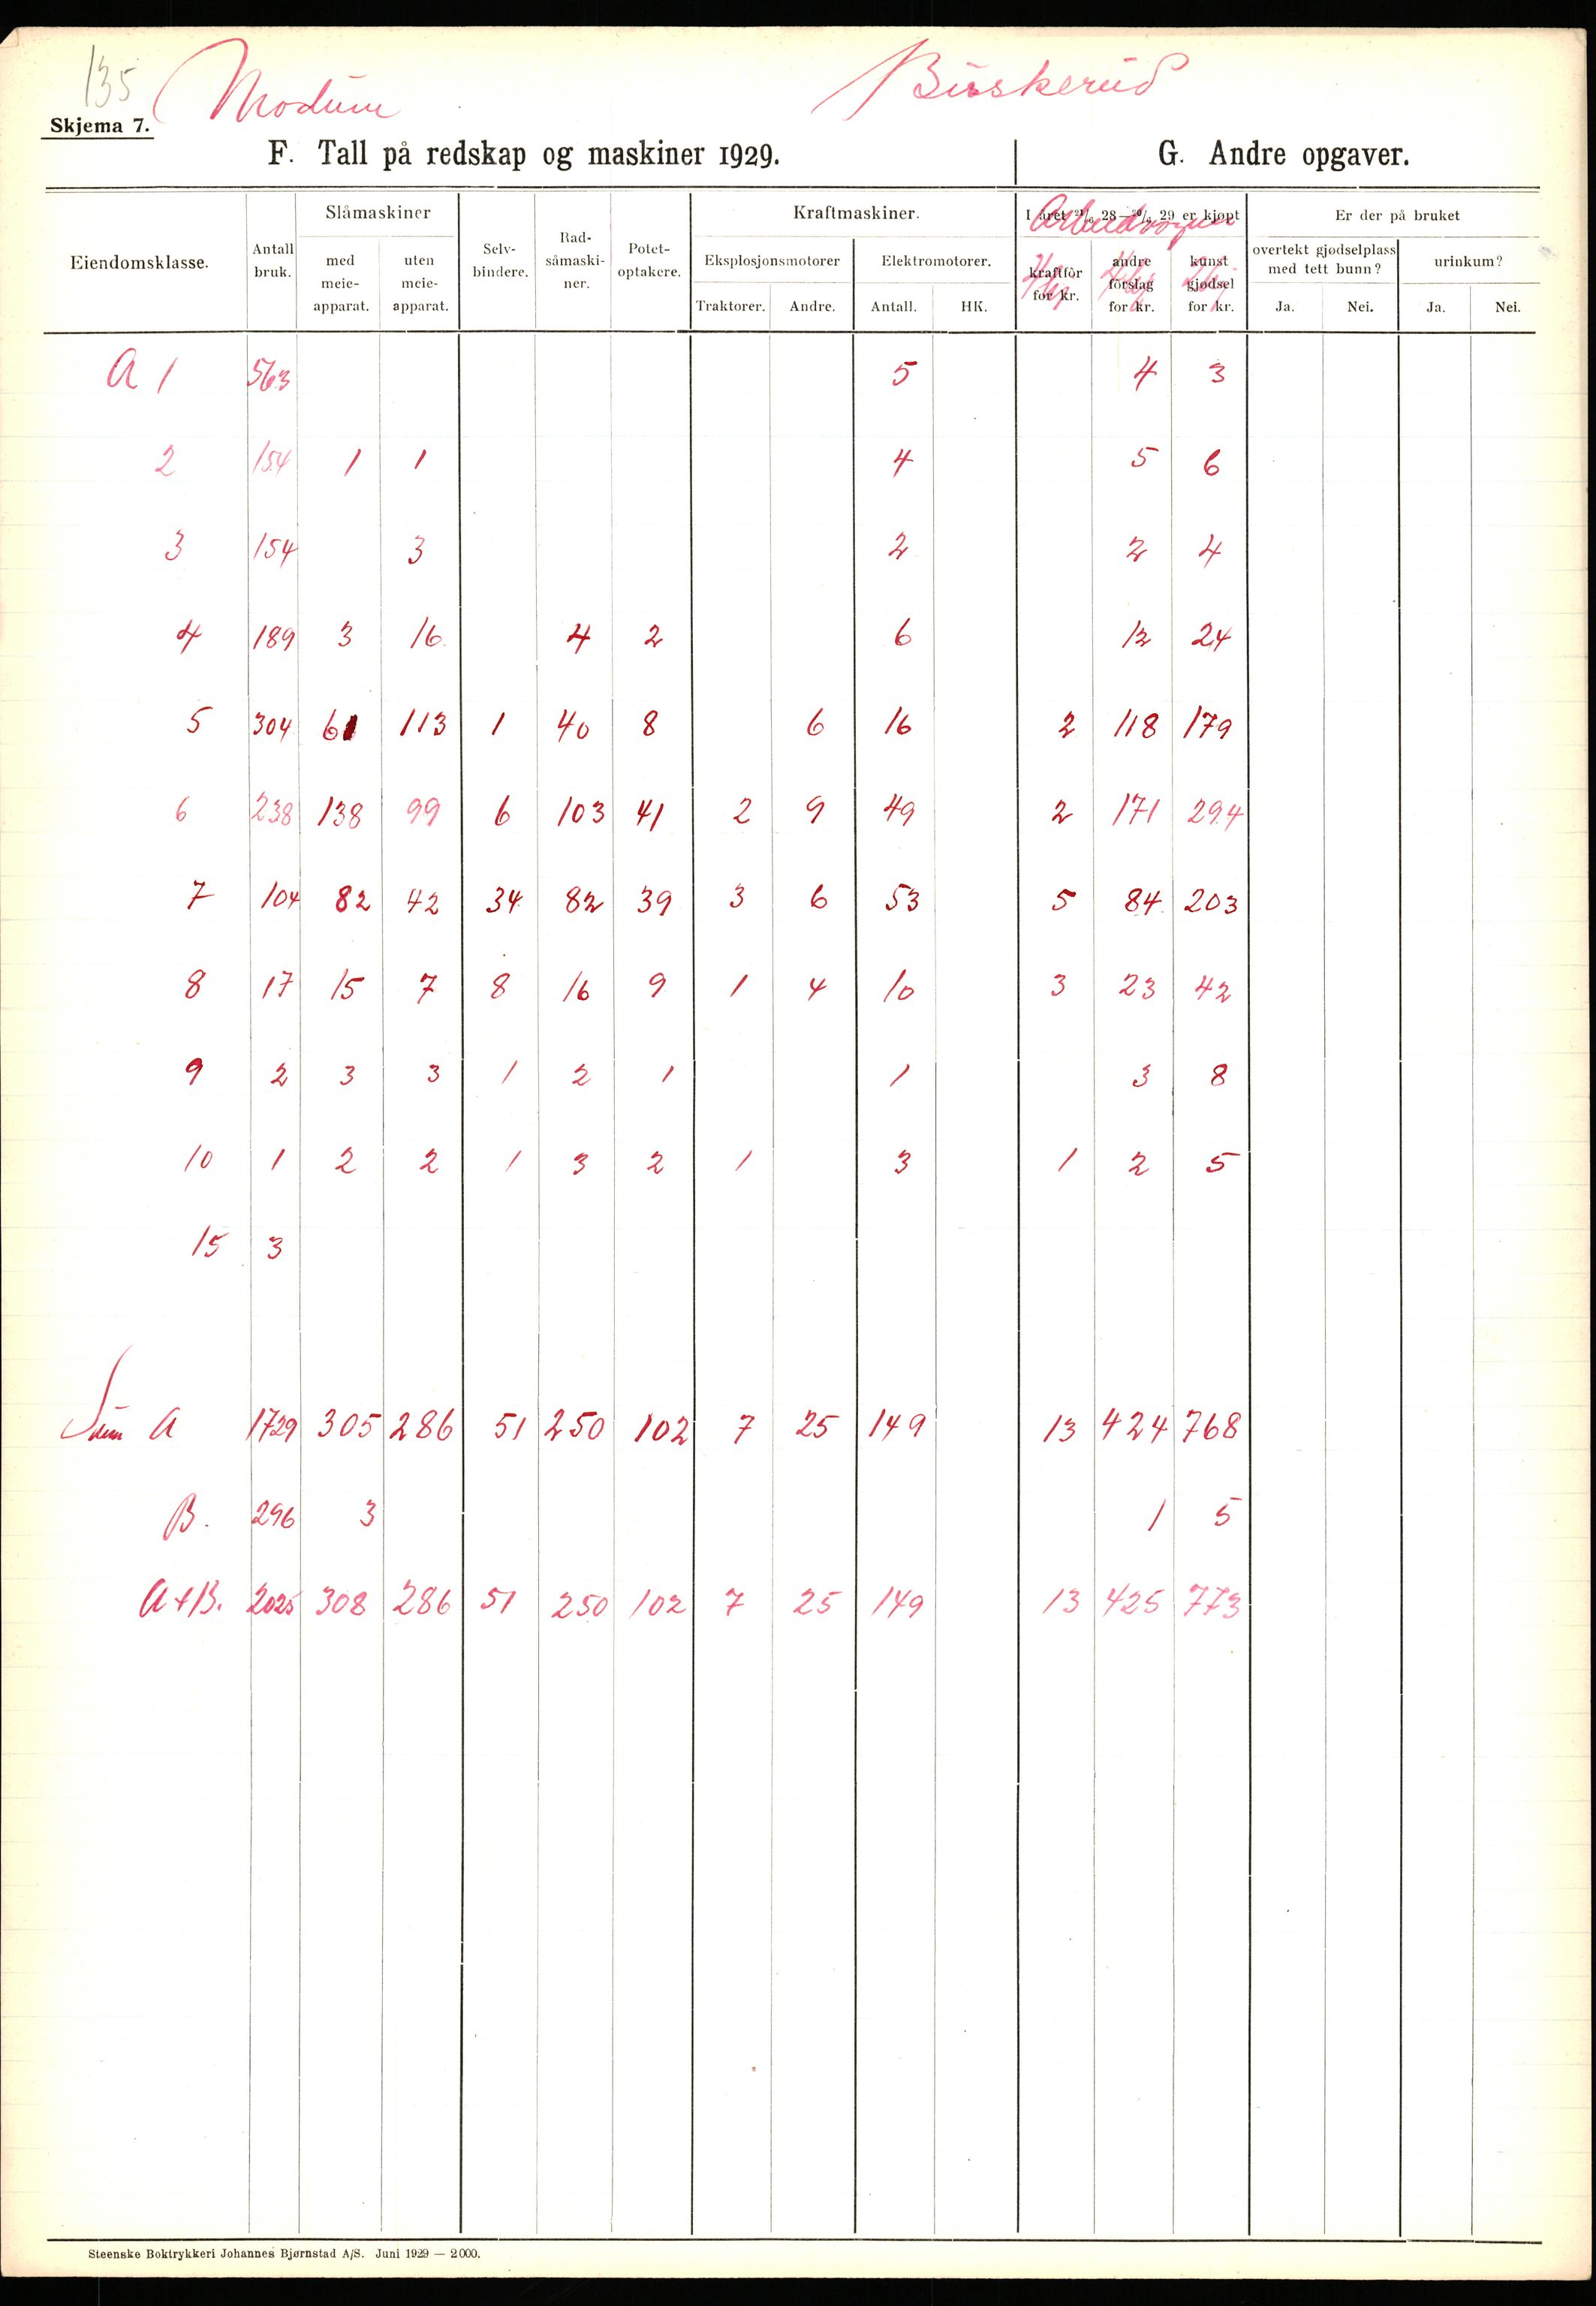 135 Modum Buskerud
Skjema 7.
F. Tall på redskap og maskiner 1929. G. Andre opgaver.
Eiendomsklasse. Antall bruk. Slåmaskiner med meie-apparat. uten meie-apparat. Selv-bindere. Rad-såmaski-ner. Potet-optakere. Kraftmaskiner. Eksplosjonsmotorer Traktorer. Andre. Elektromotorer. Antall. HK. I året 21/6 28—20/6 29 er kjøpt kraftfôr for kr. andre fôrslag for kr. kunst gjødsel for kr. Er der på bruket overtekt gjødselplass med tett bunn? Ja. Nei. urinkum? Ja. Nei.
Arbeidsvogner
4 hj 2 hj
A 1 563 5 4 3
2 154 1 1 4 5 6
3 154 3 2 2 4
4 189 3 16 4 2 6 12 24
5 304 61 113 1 40 8 6 16 2 118 179
6 238 138 99 6 103 41 2 9 49 2 171 294
7 104 82 42 34 82 39 3 6 53 5 84 203
8 17 15 7 8 16 9 1 4 10 3 23 42
9 2 3 3 1 2 1 1 3 8
10 1 2 2 1 3 2 1 3 1 2 5
15 3
Sum A 1729 305 286 51 250 102 7 25 149 13 424 768
B. 296 3 1 5
A+B. 2025 308 286 51 250 102 7 25 149 13 425 773
Steenske Boktrykkeri Johannes Bjørnstad A/S. Juni 1929 — 2000.